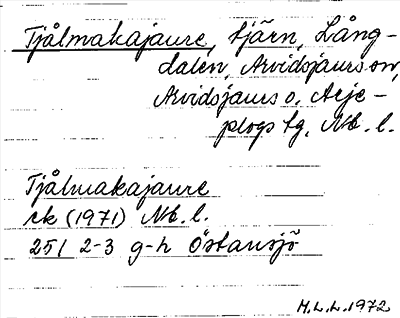 Tjålmakajaure, tjärn, Lång-
dalen, Arvidsjaurs sn,
Arvidsjaurs o. Arje-
plogs tg, Nb. l.
Tjålmakajaure
ek (1971) Nb. l.
25I 2-3 g-h Östansjö
M.L.L. 1972